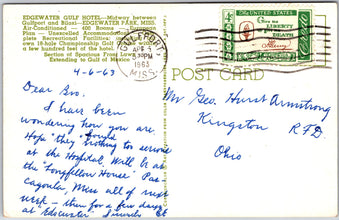 EDGEWATER GULF HOTEL—Midway between
Gulfport and Biloxi—EDGEWATER PARK, MISS.
Air-Conditioned 400 Rooms
Pins — Unexcelled Accommodations
plete Recreational Facilities
own 18-hole Championship Golf
a few hundred feet of the hotel.
Section of Spacious Front Lawn
Extending to Gulf of Mexico
GULFPORT
APR 5
PM
1963
MISS.
UNITED STATES
Give me
LIBERTY
or give me
DEATH
POST CARD
4-6-63
Dear Bro.
I have been
wondering how you are.
Hope "they" found nothing too serious
at the Hospital. Will be at
the "Longfellow House" Pas-
cagoula, Miss all of next
week — then for a few days
at Edgewater.
Mr Geo. Hurst Armstrong
Kingston R.F.D.
Ohio